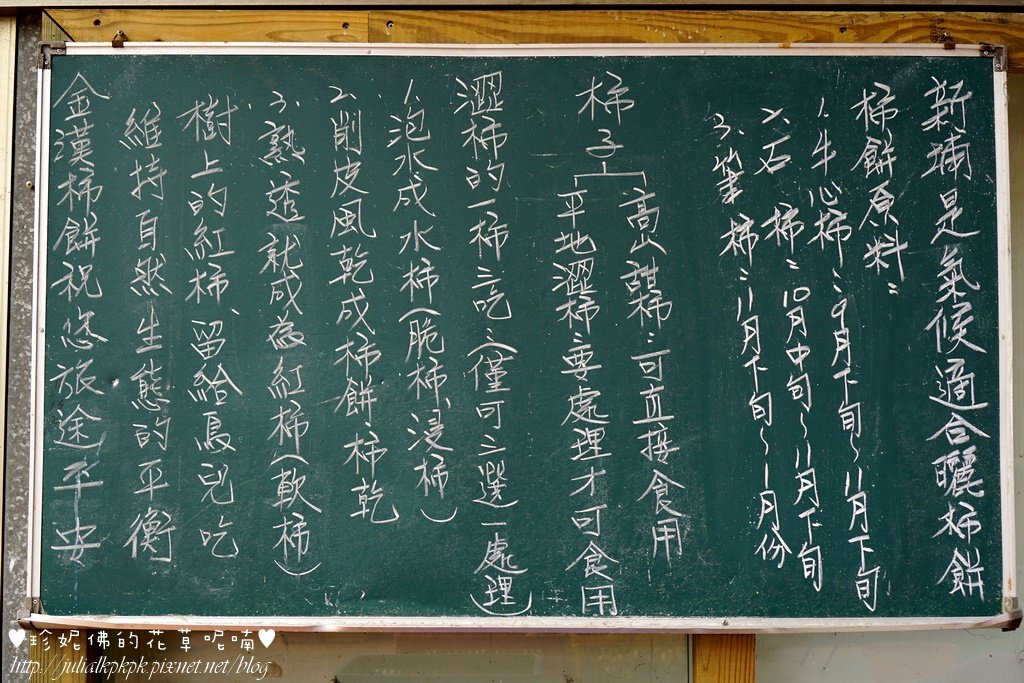 新埔是氣候適合曬柿餅
柿餅原料：
1.牛心柿：9月下旬～11月下旬
2.石柿：10月中旬～11月下旬
3.筆柿：11月下旬～1月份
柿子
高山甜柿：可直接食用
平地澀柿：要處理才可食用
澀柿的一柿三吃：（僅可三選一處理）
1.泡水成水柿（脆柿、浸柿）
2.削皮風乾成柿餅、柿乾
3.熟透就成為紅柿（軟柿）
樹上的紅柿、留給鳥兒吃
維持自然生態的平衡
金漢柿餅祝您旅途平安
♥珍妮佛的花草呢喃♥
http://julialkpkpk.pixnet.net/blog